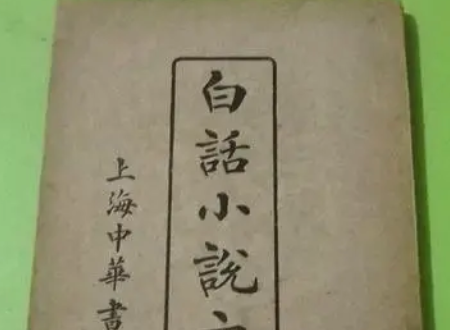 白話小說
上海中華書